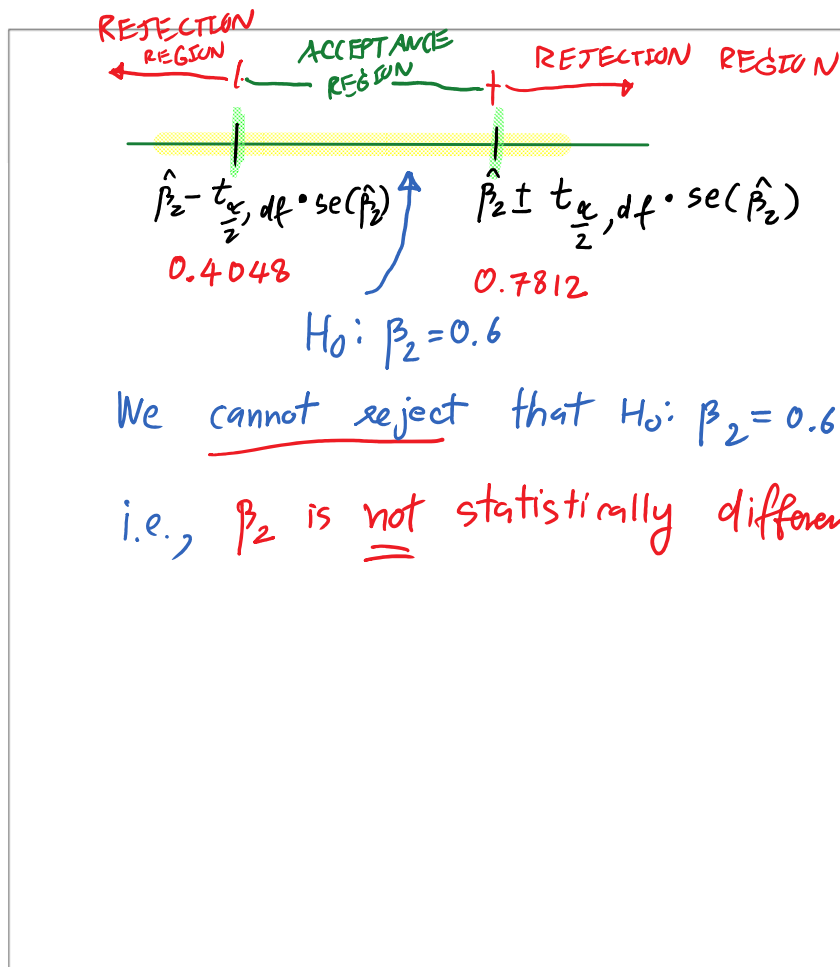 REJECTION REGION
ACCEPTANCE REGION
REJECTION REGION
β̂₂ - t_{α/2, df} · se(β̂₂)
β̂₂ ± t_{α/2, df} · se(β̂₂)
0.4048
0.7812
H₀: β₂ = 0.6
We cannot reject that H₀: β₂ = 0.6
i.e., β₂ is not statistically differen